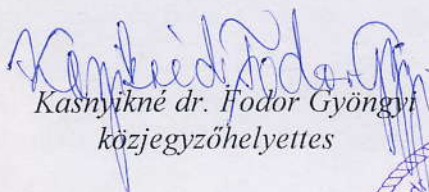 Kasnyikné dr. Fodor Gyöngyi
közjegyzőhelyettes